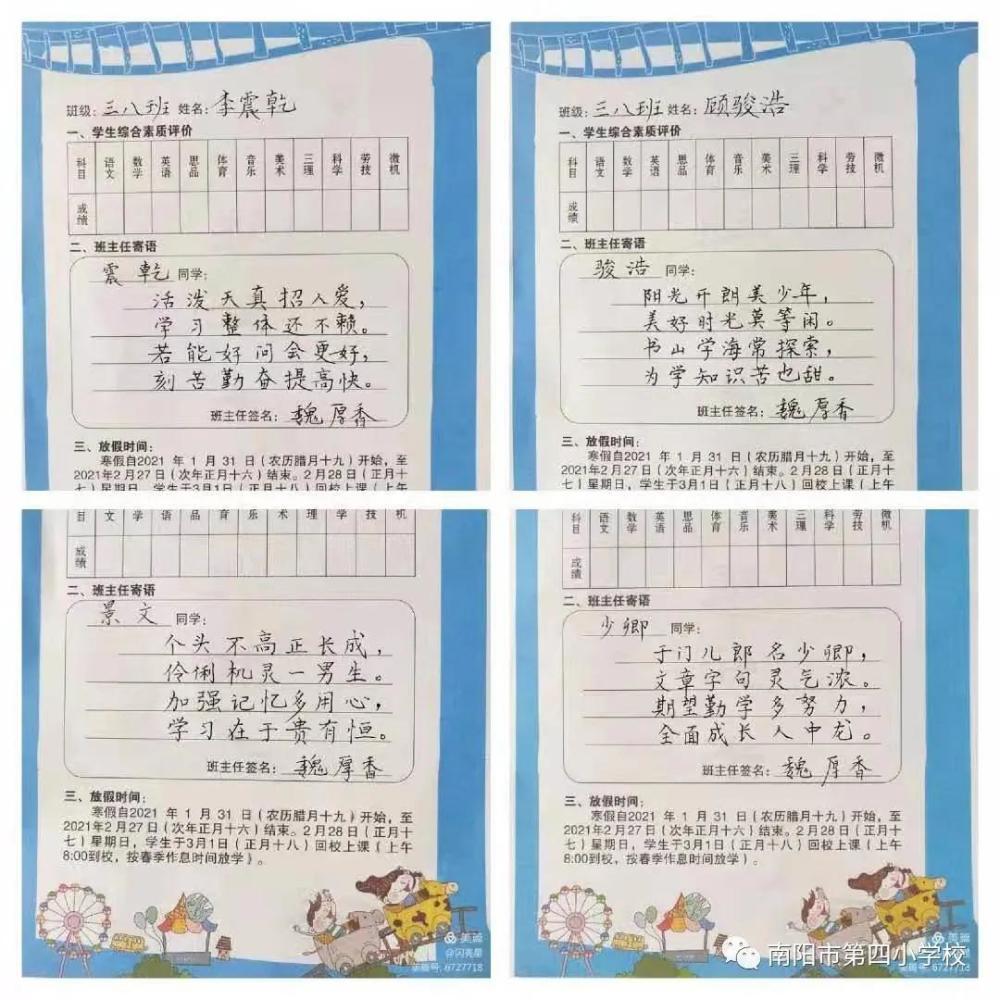 班级:三八班 姓名:李震乾
一、学生综合素质评价
科目 语文 数学 英语 思品 体育 音乐 美术 三理 科学 劳技 微机
成绩
二、班主任寄语
震乾 同学:
活泼天真招人爱,
学习整体还不赖。
若能好问会更好,
刻苦勤奋提高快。
班主任签名:魏厚香
三、放假时间:
寒假自2021 年 1 月 31 日(农历腊月十九)开始,至
2021年2月27日(次年正月十六)结束。2月28日(正月十
七)星期日,学生于3月1日(正月十八)回校上课(上午
班级:三八班 姓名:顾骏浩
一、学生综合素质评价
科目 语文 数学 英语 思品 体育 音乐 美术 三理 科学 劳技 微机
成绩
二、班主任寄语
骏浩 同学:
阳光开朗美少年,
美好时光莫等闲。
书山学海常探索,
为学知识苦也甜。
班主任签名:魏厚香
三、放假时间:
寒假自2021 年 1 月 31 日(农历腊月十九)开始,至
2021年2月27日(次年正月十六)结束。2月28日(正月十
七)星期日,学生于3月1日(正月十八)回校上课(上午
目 文 学 语 品 育 乐 术 理 学 技 机
成绩
二、班主任寄语
景文 同学:
个头不高正长成,
伶俐机灵一男生。
加强记忆多用心,
学习在于贵有恒。
班主任签名:魏厚香
三、放假时间:
寒假自2021 年 1 月 31 日(农历腊月十九)开始,至
2021年2月27日(次年正月十六)结束。2月28日(正月十
七)星期日,学生于3月1日(正月十八)回校上课(上午
8:00到校,按春季作息时间放学)。
美篇
@闪亮星
美篇号:6727718
科目 语文 数学 英语 思品 体育 音乐 美术 三理 科学 劳技 微机
成绩
二、班主任寄语
少卿 同学:
于门儿郎名少卿,
文章字句灵气浓。
期望勤学多努力,
全面成长人中龙。
班主任签名:魏厚香
三、放假时间:
寒假自2021 年 1 月 31 日(农历腊月十九)开始,至
2021年2月27日(次年正月十六)结束。2月28日(正月十
七)星期日,学生于3月1日(正月十八)回校上课(上午
8:00到校,按春季作息时间放学)。
美篇
南阳市第四小学校